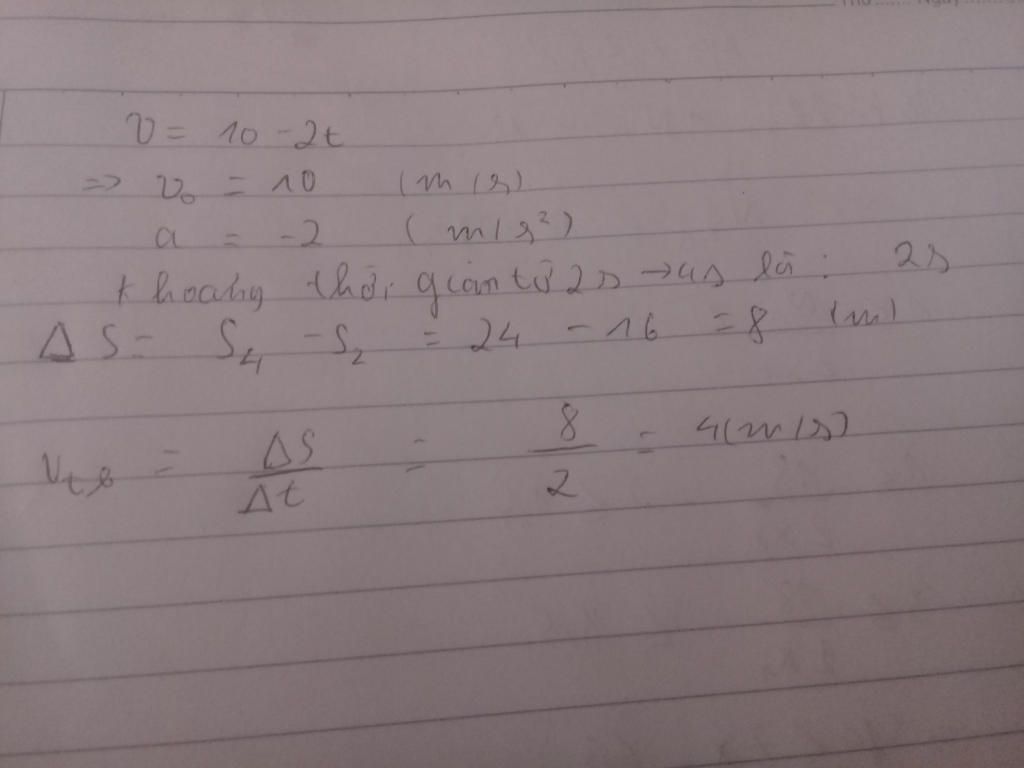 v = 10 - 2t
=> v₀ = 10 (m/s)
a = -2 (m/s²)
khoảng thời gian từ 2s → 4s là : 2s
ΔS = S₄ - S₂ = 24 - 16 = 8 (m)
v_tb = ΔS/Δt = 8/2 = 4(m/s)